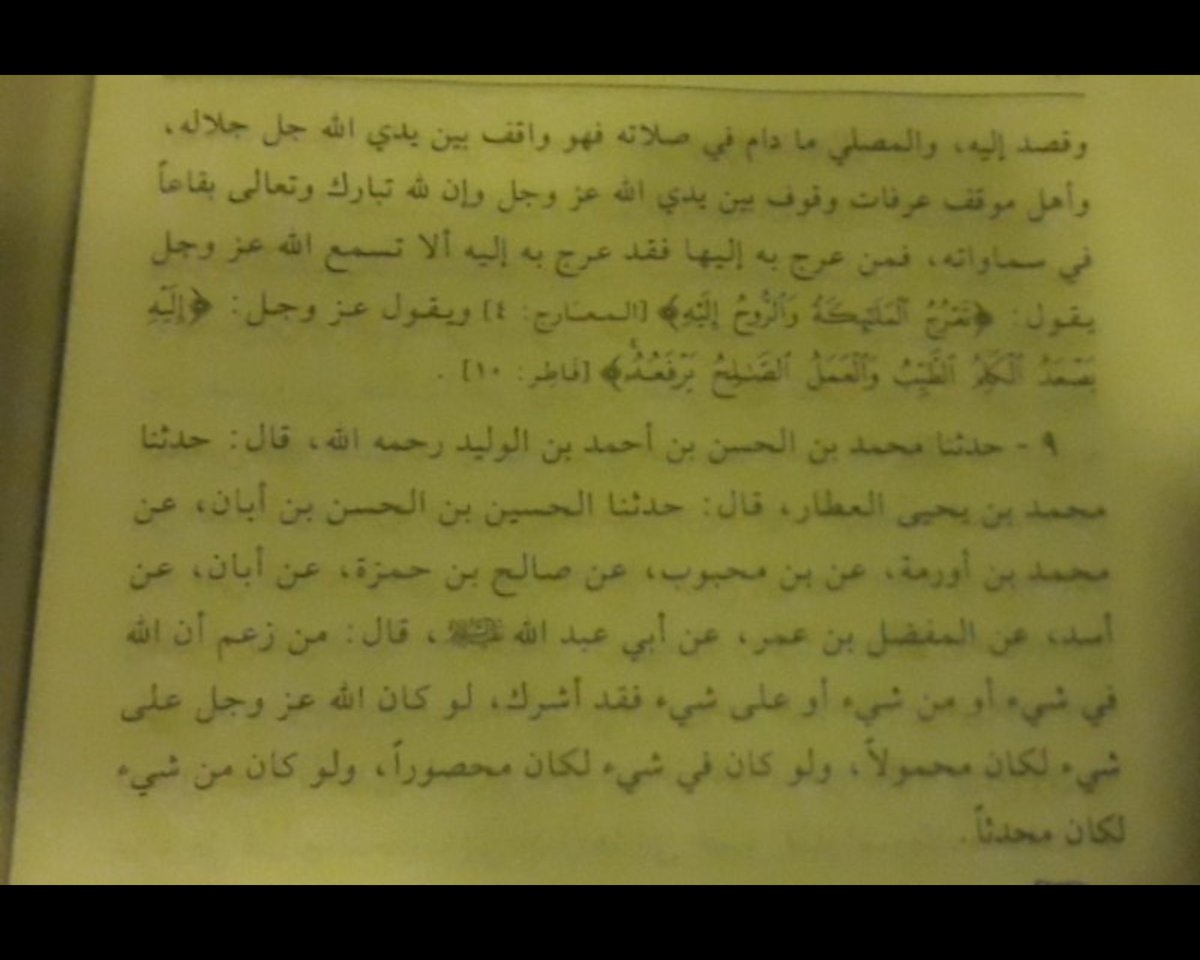 وقصد إليه، والمصلي ما دام في صلاته فهو واقف بين يدي الله جل جلاله،
وأهل موقف عرفات وقوف بين يدي الله عز وجل وإن لله تبارك وتعالى بقاعاً
في سماواته، فمن عرج به إليها فقد عرج به إليه ألا تسمع الله عز وجل
يقول: ﴿تَعْرُجُ ٱلْمَلَٰٓئِكَةُ وَٱلرُّوحُ إِلَيْهِ﴾ [المعارج: ٤] ويقول عز وجل: ﴿إِلَيْهِ
يَصْعَدُ ٱلْكَلِمُ ٱلطَّيِّبُ وَٱلْعَمَلُ ٱلصَّٰلِحُ يَرْفَعُهُۥ﴾ [فَاطِر: ١٠].
٩ - حدثنا محمد بن الحسن بن أحمد بن الوليد رحمه الله، قال: حدثنا
محمد بن يحيى العطار، قال: حدثنا الحسين بن الحسن بن أبان، عن
محمد بن أورمة، عن بن محبوب، عن صالح بن حمزة، عن أبان، عن
أسد، عن المفضل بن عمر، عن أبي عبد الله ، قال: من زعم أن الله
في شيء أو من شيء أو على شيء فقد أشرك، لو كان الله عز وجل على
شيء لكان محمولاً، ولو كان في شيء لكان محصوراً، ولو كان من شيء
لكان محدثاً.